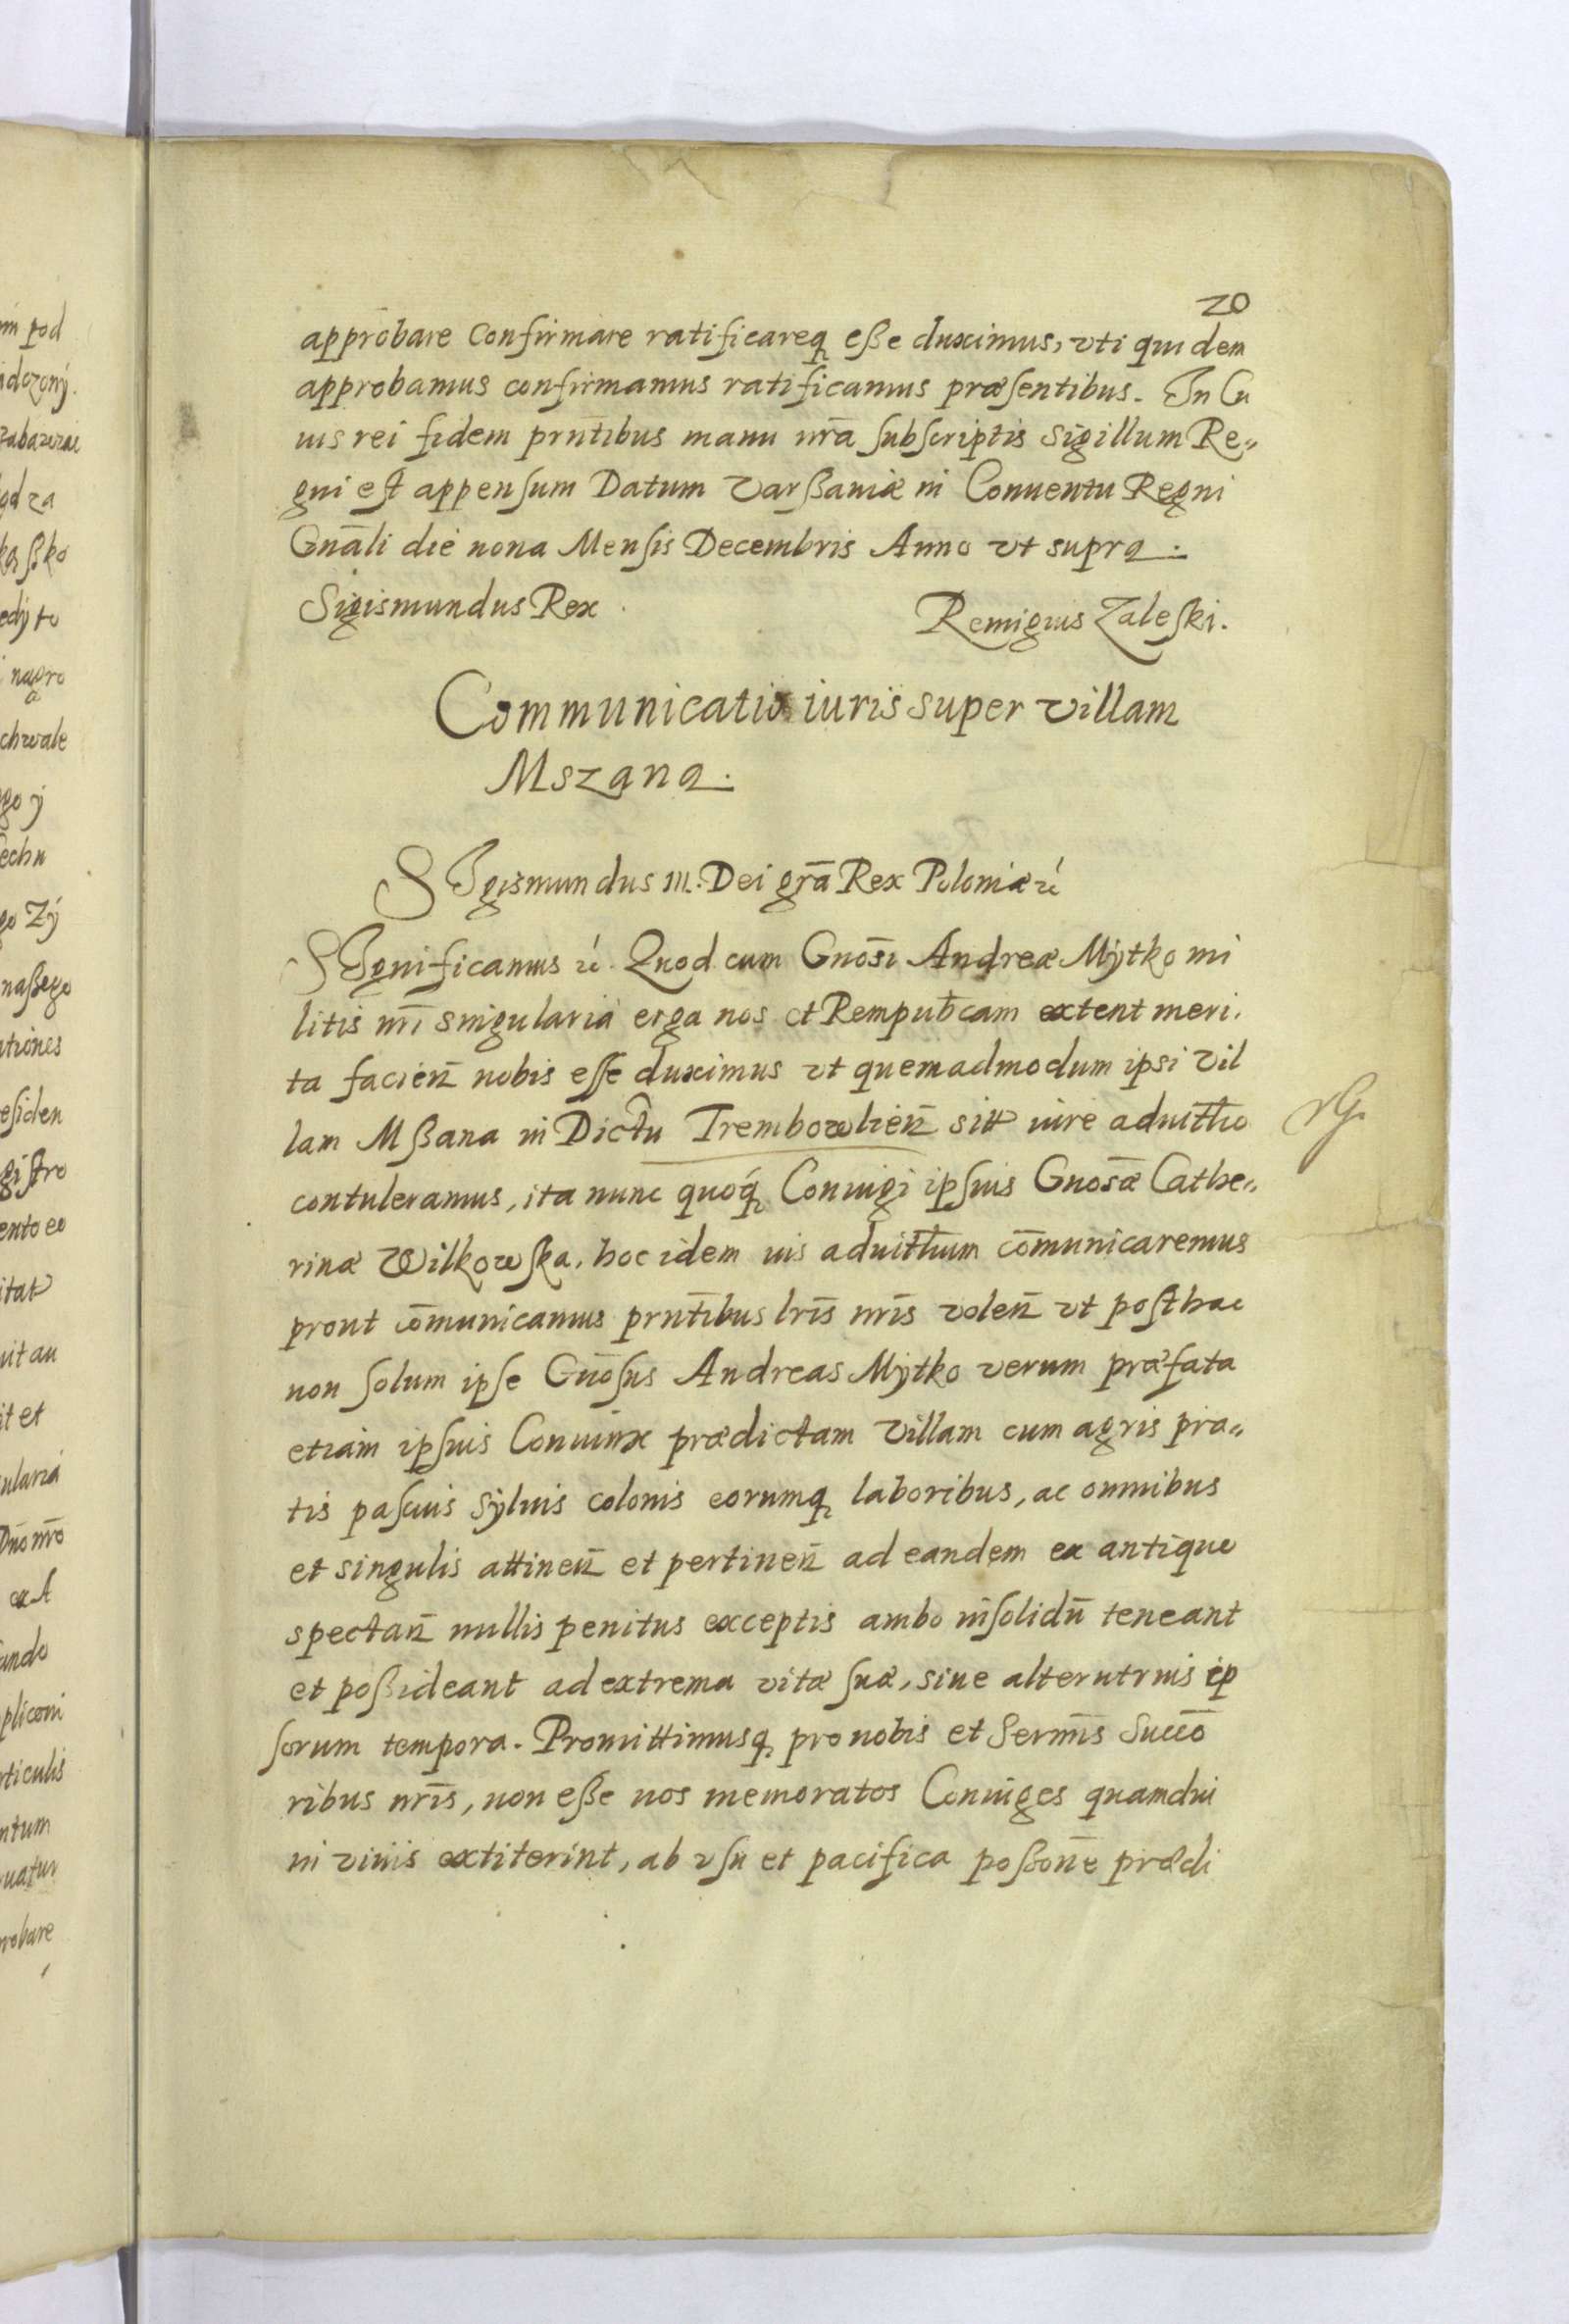 20
approbare confirmare ratificareq̨ eße duximus, vti quidem
approbamus confirmamus ratificamus præsentibus. In Cu
ius rei fidem prñtibus manu nr̃a subscriptis Sigillum Re„
gni est appensum Datum Varßaviæ in Conuentu Regni
Gnãli die nona Mensis Decembris Anno vt supra.
Sigismundus Rex.
Remigius Zaleski.
Communicatio iuris super villam
Mszana.
SIgismundus III. Dei grã Rex Poloniæ &c
SIgnificamus &c. Quod cum Gnõsi Andreæ Mytko mi
litis nr̃i singularia erga nos et Rempub̃cam extent meri.
ta facieñ nobis esse duximus vt quemadmodum ipsi vil
lam Mßana in Dictũ Trembowlieñ sitt iure aduitt̃io
contuleramus, ita nunc quoq̨́ Coniugi ipsius Gnosæ̃ Cathe„
rinæ Wilkowska, hoc idem ius aduitt̃ium cõmunicaremus
prout cõmunicamus prñtibus lrĩs nrĩs voleñ vt posthac
non solum ipse Gnõsus Andreas Mytko verum præfata
etiam ipsius Coniunx prædictam villam cum agris pra„
tis pascuis syluis colonis eorumq̨ laboribus, ac omnibus
et singulis attineñ et pertineñ ad eandem ex antiquo
spectañ nullis penitus exceptis ambo insolidũ teneant
et poßideant ad extrema vitæ suæ, siue alterutrius ip
sorum tempora. Promittimusq̨ pro nobis et Serm̃is Succõ
ribus nrĩs, non eße nos memoratos Coniuges quamdiu
in viuis extiterint, ab vsu et pacifica poßoñe prædi